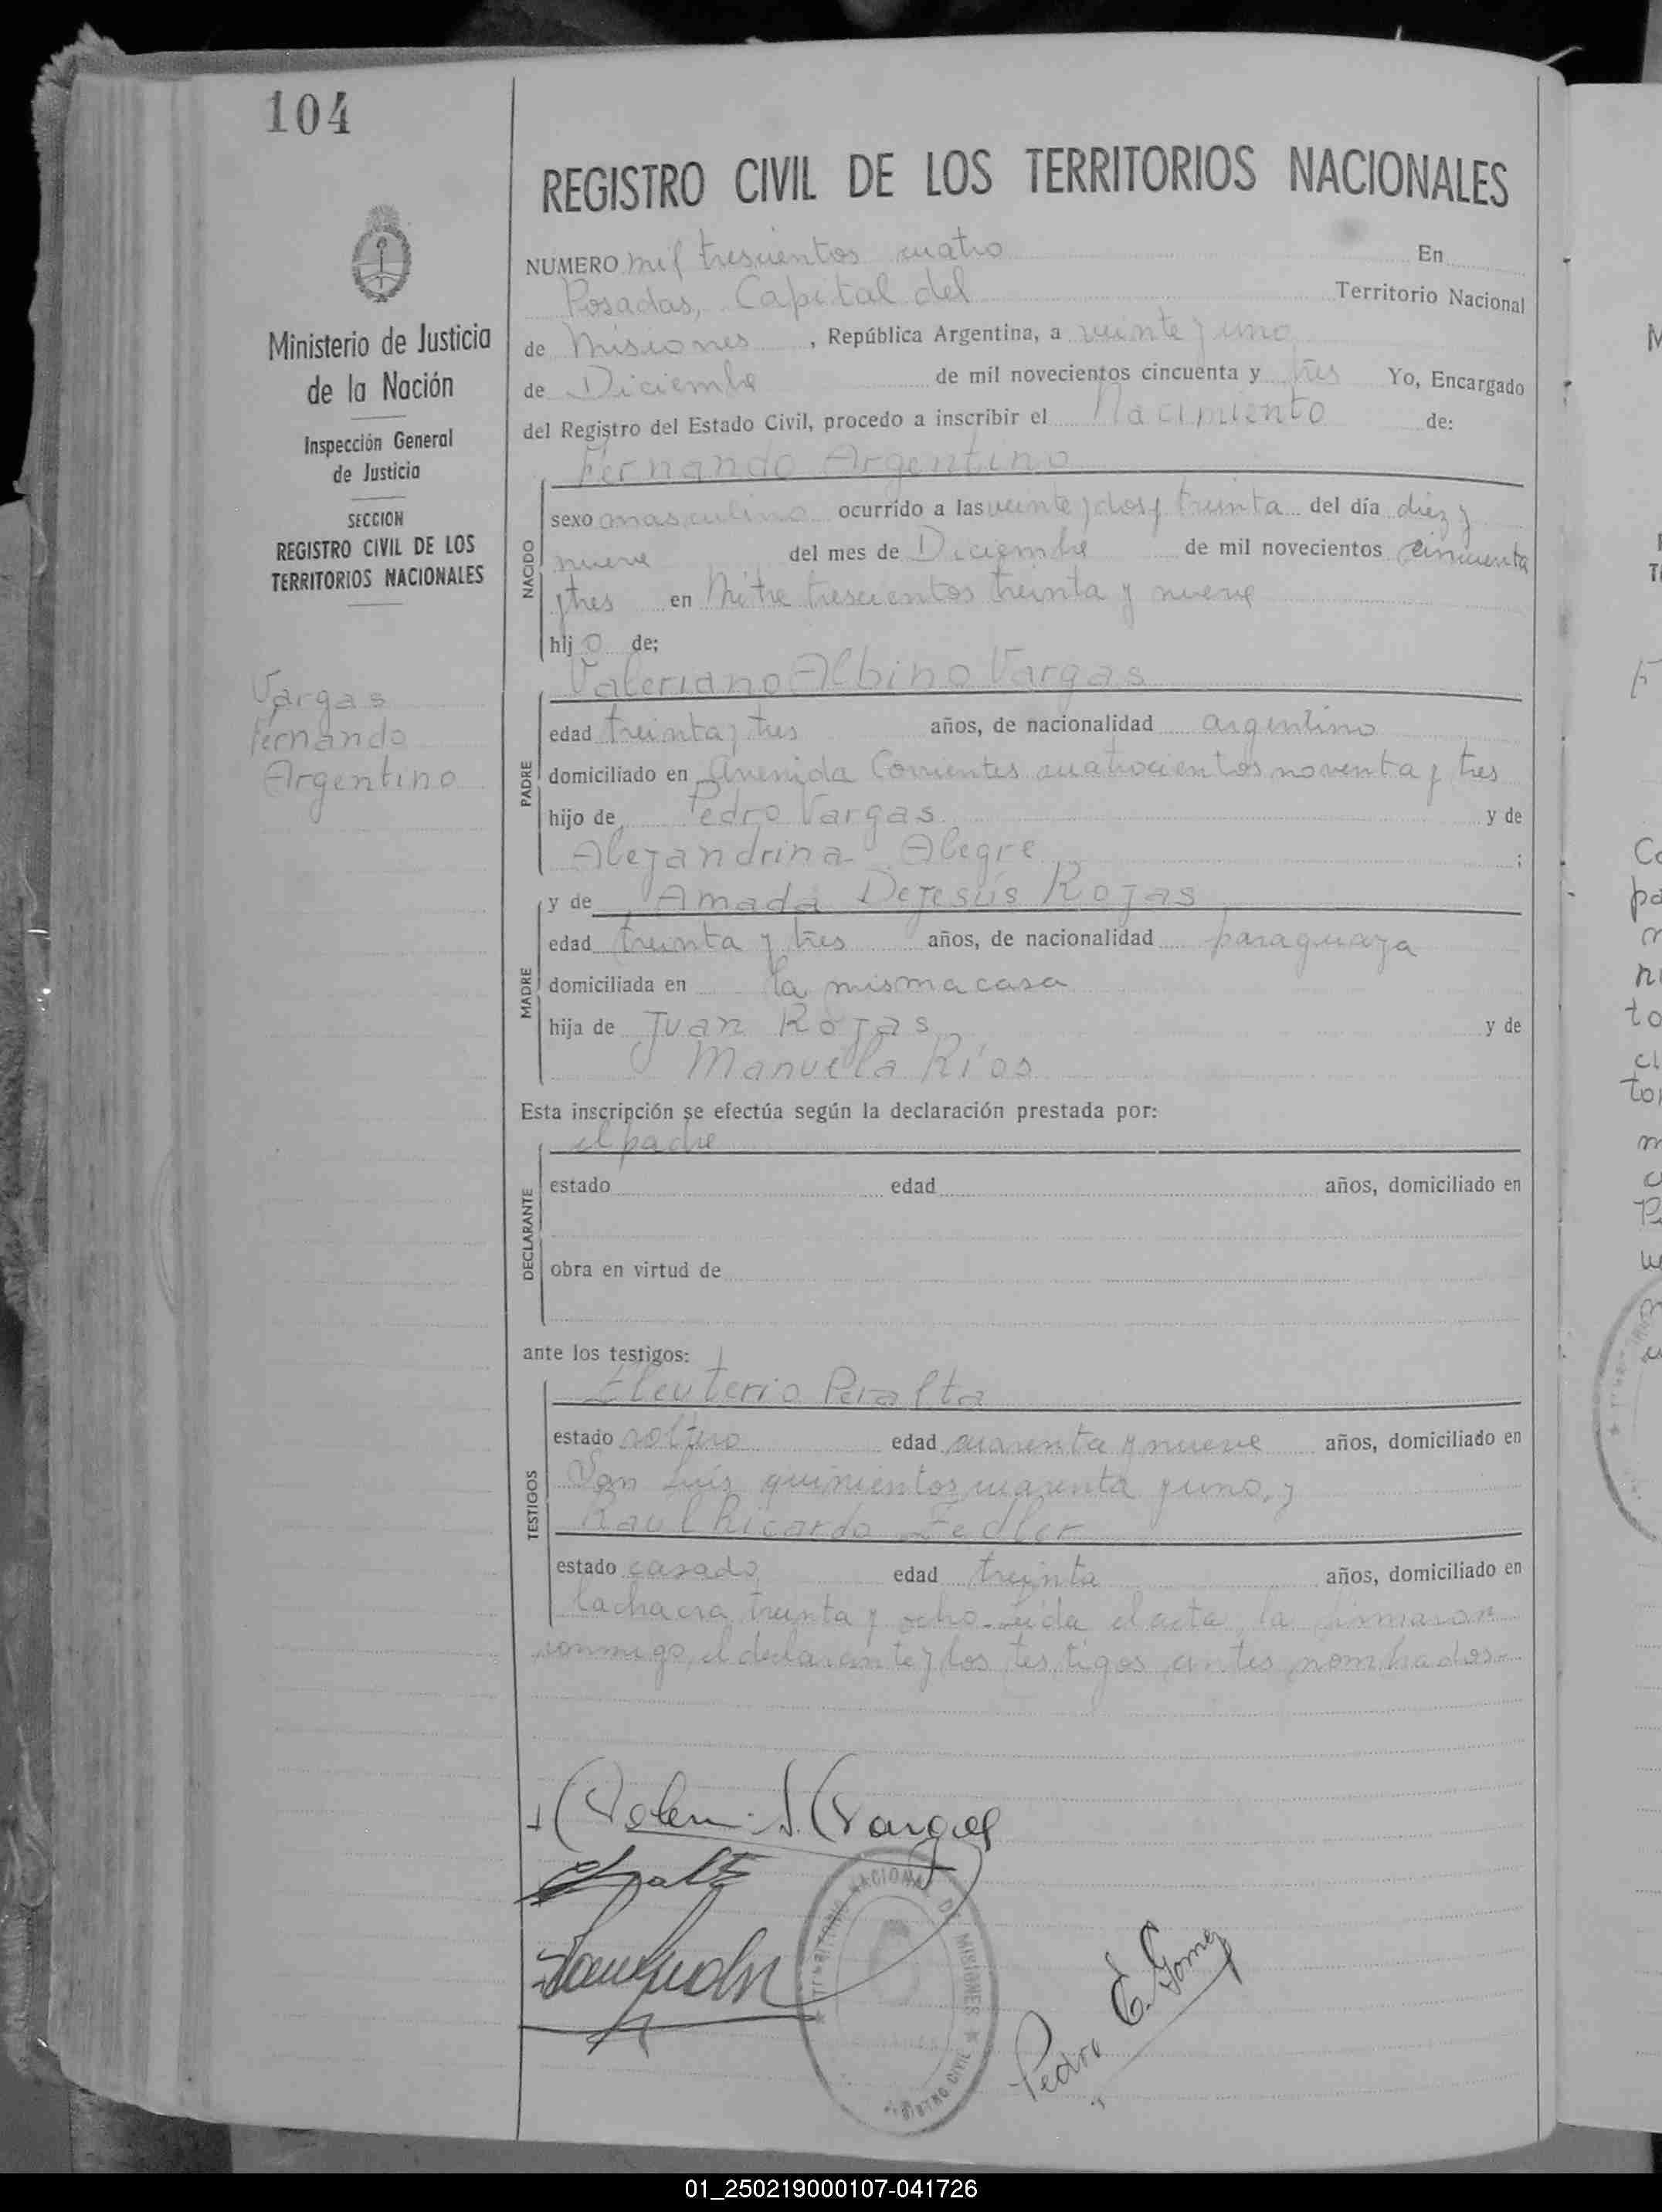 104
REGISTRO CIVIL DE LOS TERRITORIOS NACIONALES
Ministerio de Justicia
de la Nación
Inspección General
de Justicia
SECCION
REGISTRO CIVIL DE LOS
TERRITORIOS NACIONALES
Vargas
Fernando
Argentino
NUMERO mil trescientos cuatro En
Posadas, Capital del Territorio Nacional
de Misiones, República Argentina, a veinte y uno
de Diciembre de mil novecientos cincuenta y tres Yo, Encargado
del Registro del Estado Civil, procedo a inscribir el Nacimiento de:
Fernando Argentino
NACIDO
sexo masculino ocurrido a las veinte y dos y treinta del día diez y
nueve del mes de Diciembre de mil novecientos cincuenta
y tres en Mitre trescientos treinta y nueve
hijo de;
Valeriano Albino Vargas
PADRE
edad treinta y tres años, de nacionalidad argentino
domiciliado en Avenida Corrientes cuatrocientos noventa y tres
hijo de Pedro Vargas y de
Alejandrina Alegre ;
MADRE
y de Amada Dejesús Rojas
edad treinta y tres años, de nacionalidad paraguaya
domiciliada en la misma casa
hija de Juan Rojas y de
Manuela Ríos
Esta inscripción se efectúa según la declaración prestada por:
el padre
DECLARANTE
estado edad años, domiciliado en
obra en virtud de
ante los testigos:
Eleuterio Peralta
TESTIGOS
estado soltero edad cuarenta y nueve años, domiciliado en
San Luis quinientos cuarenta y uno, y
Raul Ricardo Fedler
estado casado edad treinta años, domiciliado en
la chacra treinta y ocho. Leída el acta, la firmaron
conmigo, el declarante y los testigos antes nombrados.-
Vargas
TERRITORIO NACIONAL DE MISIONES
REGISTRO CIVIL
Pedro E. Gomez
01_250219000107-041726